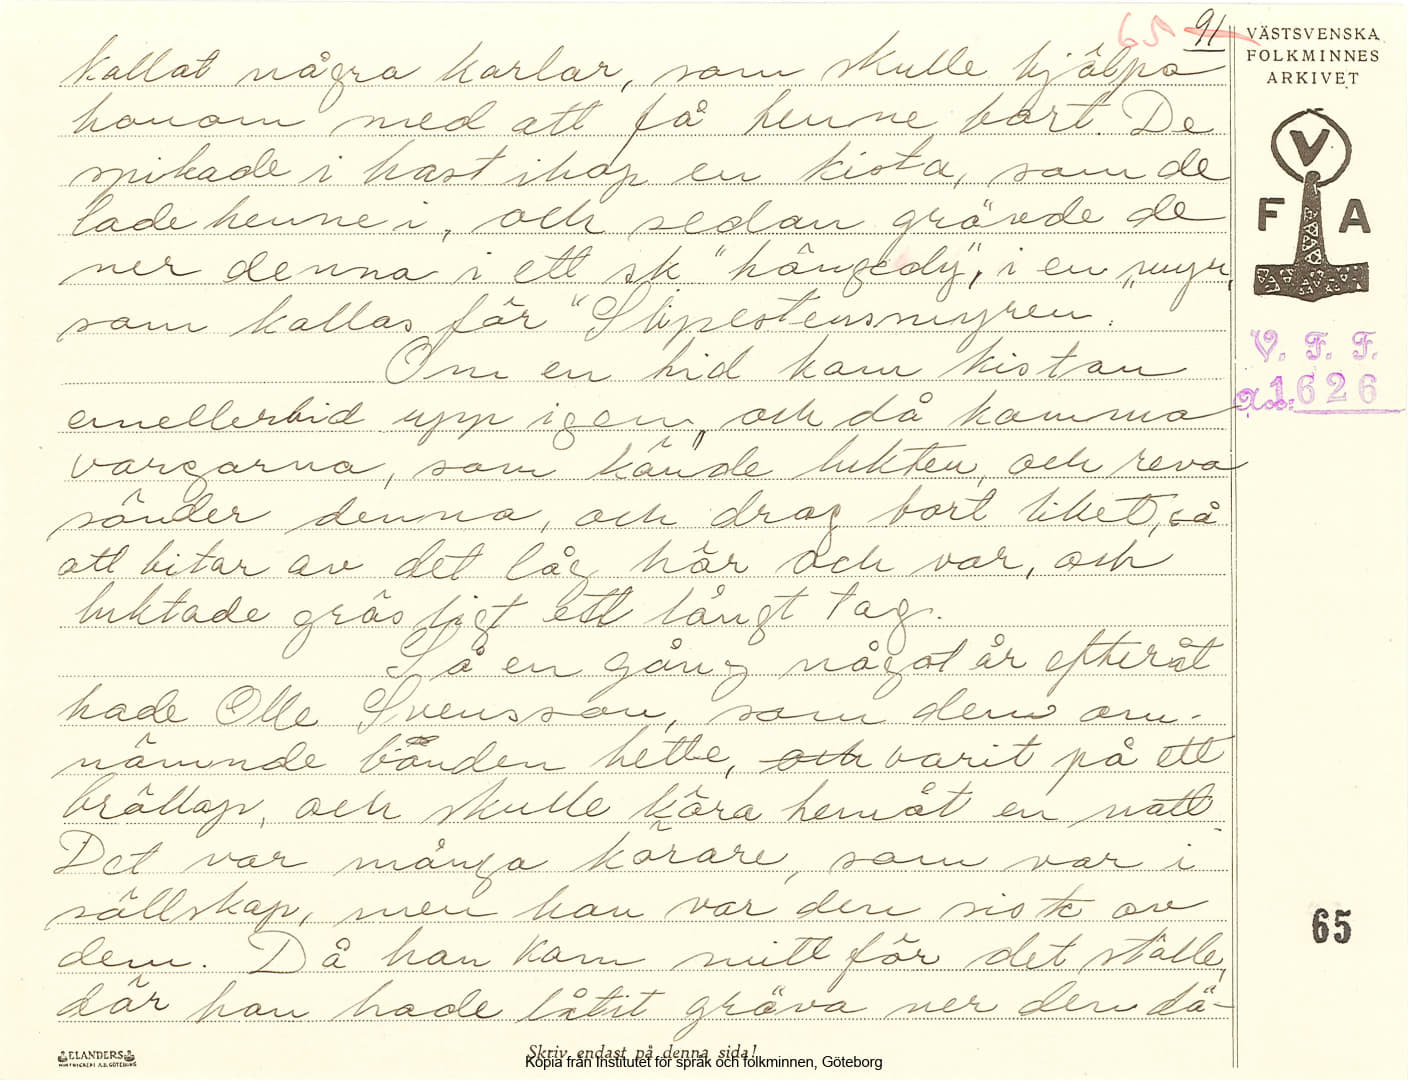 65 91
VÄSTSVENSKA
FOLKMINNES
ARKIVET
V
F A
V. F. F.
1626
65
kallat några karlar, som skulle hjälpa
honom med att få henne bort. De
spikade i hast ihop en kista, som de
lade henne i, och sedan grävde de
ner denna i ett sk "hängedy", i en myr,
som kallas för "Slipestensmyren".
Om en tid kom kistan
emellertid upp igen, och då kommo
vargarna, som kände lukten, och reva
sönder denna, och drog bort liket, så
att bitar av det låg här och var, och
luktade gräsligt ett långt tag.
Så en gång något år efteråt
hade Olle Svensson, som den om-
nämnde bonden hette, och varit på ett
bröllop, och skulle köra hemåt en natt.
Det var många körare, som var i
sällskap, men han var den siste av
dem. Då han kom mitt för det ställe,
där han hade låtit gräva ner den dö-
ELANDERS
Skriv endast på denna sida!
Kopia från Institutet för språk och folkminnen, Göteborg